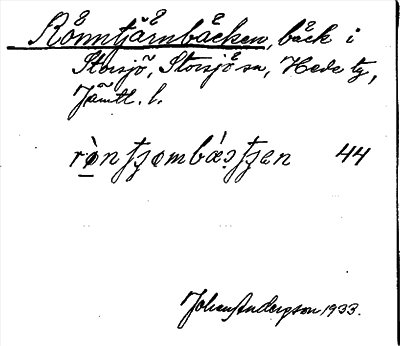 Rönntjärnbäcken, bäck i
Storsjö, Storsjö sn, Hede tg,
Jämtl. l.
rò̱n tʒømbáɛtʒen 44
Johan Anderzson 1933.